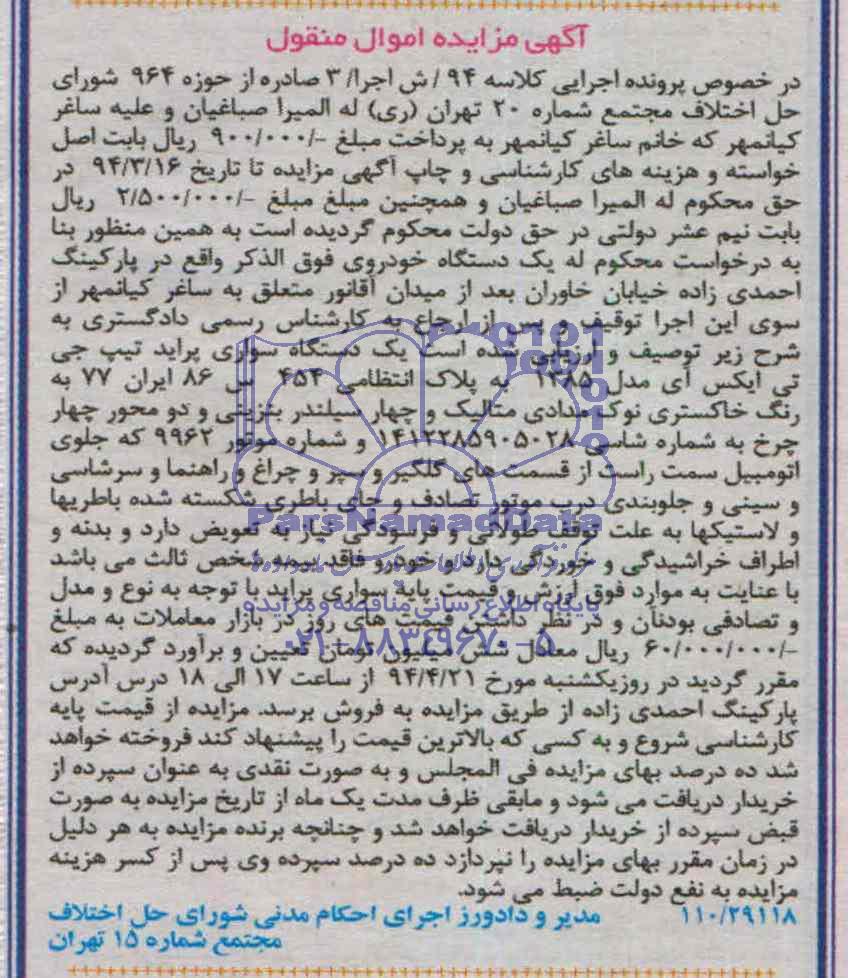 آگهی مزایده اموال منقول
در خصوص پرونده اجرایی کلاسه ۹۴ / ش اجرا/ ۳ صادره از حوزه ۹۶۴ شورای
حل اختلاف مجتمع شماره ۲۰ تهران (ری) له المیرا صباغیان و علیه ساغر
کیانمهر که خانم ساغر کیانمهر به پرداخت مبلغ -/۹۰۰/۰۰۰ ریال بابت اصل
خواسته و هزینه های کارشناسی و چاپ آگهی مزایده تا تاریخ ۹۴/۳/۱۶ در
حق محکوم له المیرا صباغیان و همچنین مبلغ مبلغ -/۲/۵۰۰/۰۰۰ ریال
بابت نیم عشر دولتی در حق دولت محکوم گردیده است به همین منظور بنا
به درخواست محکوم له یک دستگاه خودروی فوق الذکر واقع در پارکینگ
احمدی زاده خیابان خاوران بعد از میدان آقانور متعلق به ساغر کیانمهر از
سوی این اجرا توقیف و پس از ارجاع به کارشناس رسمی دادگستری به
شرح زیر توصیف و ارزیابی شده است یک دستگاه سواری پراید تیپ جی
تی ایکس آی مدل ۱۳۸۵ به پلاک انتظامی ۴۵۴ س ۸۶ ایران ۷۷ به
رنگ خاکستری نوک مدادی متالیک و چهار سیلندر بنزینی و دو محور چهار
چرخ به شماره شاسی ۱۴۱۲۲۸۵۹۰۵۰۲۸ و شماره موتور ۹۹۶۲ که جلوی
اتومبیل سمت راست از قسمت های گلگیر و سپر و چراغ و راهنما و سرشاسی
و سینی و جلوبندی درب موتور تصادف و جای باطری شکسته شده باطریها
و لاستیکها به علت توقف طولانی و فرسودگی نیاز به تعویض دارد و بدنه و
اطراف خراشیدگی و خوردگی دارد و خودرو فاقد بیمه شخص ثالث می باشد
با عنایت به موارد فوق ارزش و قیمت پایه سواری پراید با توجه به نوع و مدل
و تصادفی بودنآن و در نظر داشتن قیمت های روز در بازار معاملات به مبلغ
-/۶۰/۰۰۰/۰۰۰ ریال معادل شش میلیون تومان تعیین و برآورد گردیده که
مقرر گردید در روزیکشنبه مورخ ۹۴/۴/۲۱ از ساعت ۱۷ الی ۱۸ درس آدرس
پارکینگ احمدی زاده از طریق مزایده به فروش برسد. مزایده از قیمت پایه
کارشناسی شروع و به کسی که بالاترین قیمت را پیشنهاد کند فروخته خواهد
شد ده درصد بهای مزایده فی المجلس و به صورت نقدی به عنوان سپرده از
خریدار دریافت می شود و مابقی ظرف مدت یک ماه از تاریخ مزایده به صورت
قبض سپرده از خریدار دریافت خواهد شد و چنانچه برنده مزایده به هر دلیل
در زمان مقرر بهای مزایده را نپردازد ده درصد سپرده وی پس از کسر هزینه
مزایده به نفع دولت ضبط می شود.
۱۱۰/۲۹۱۱۸ مدیر و دادورز اجرای احکام مدنی شورای حل اختلاف
مجتمع شماره ۱۵ تهران
ParsNamadData
پایگاه اطلاع رسانی مناقصه و مزایده
۰۲۱-۸۸۳۴۹۶۷۰-۵